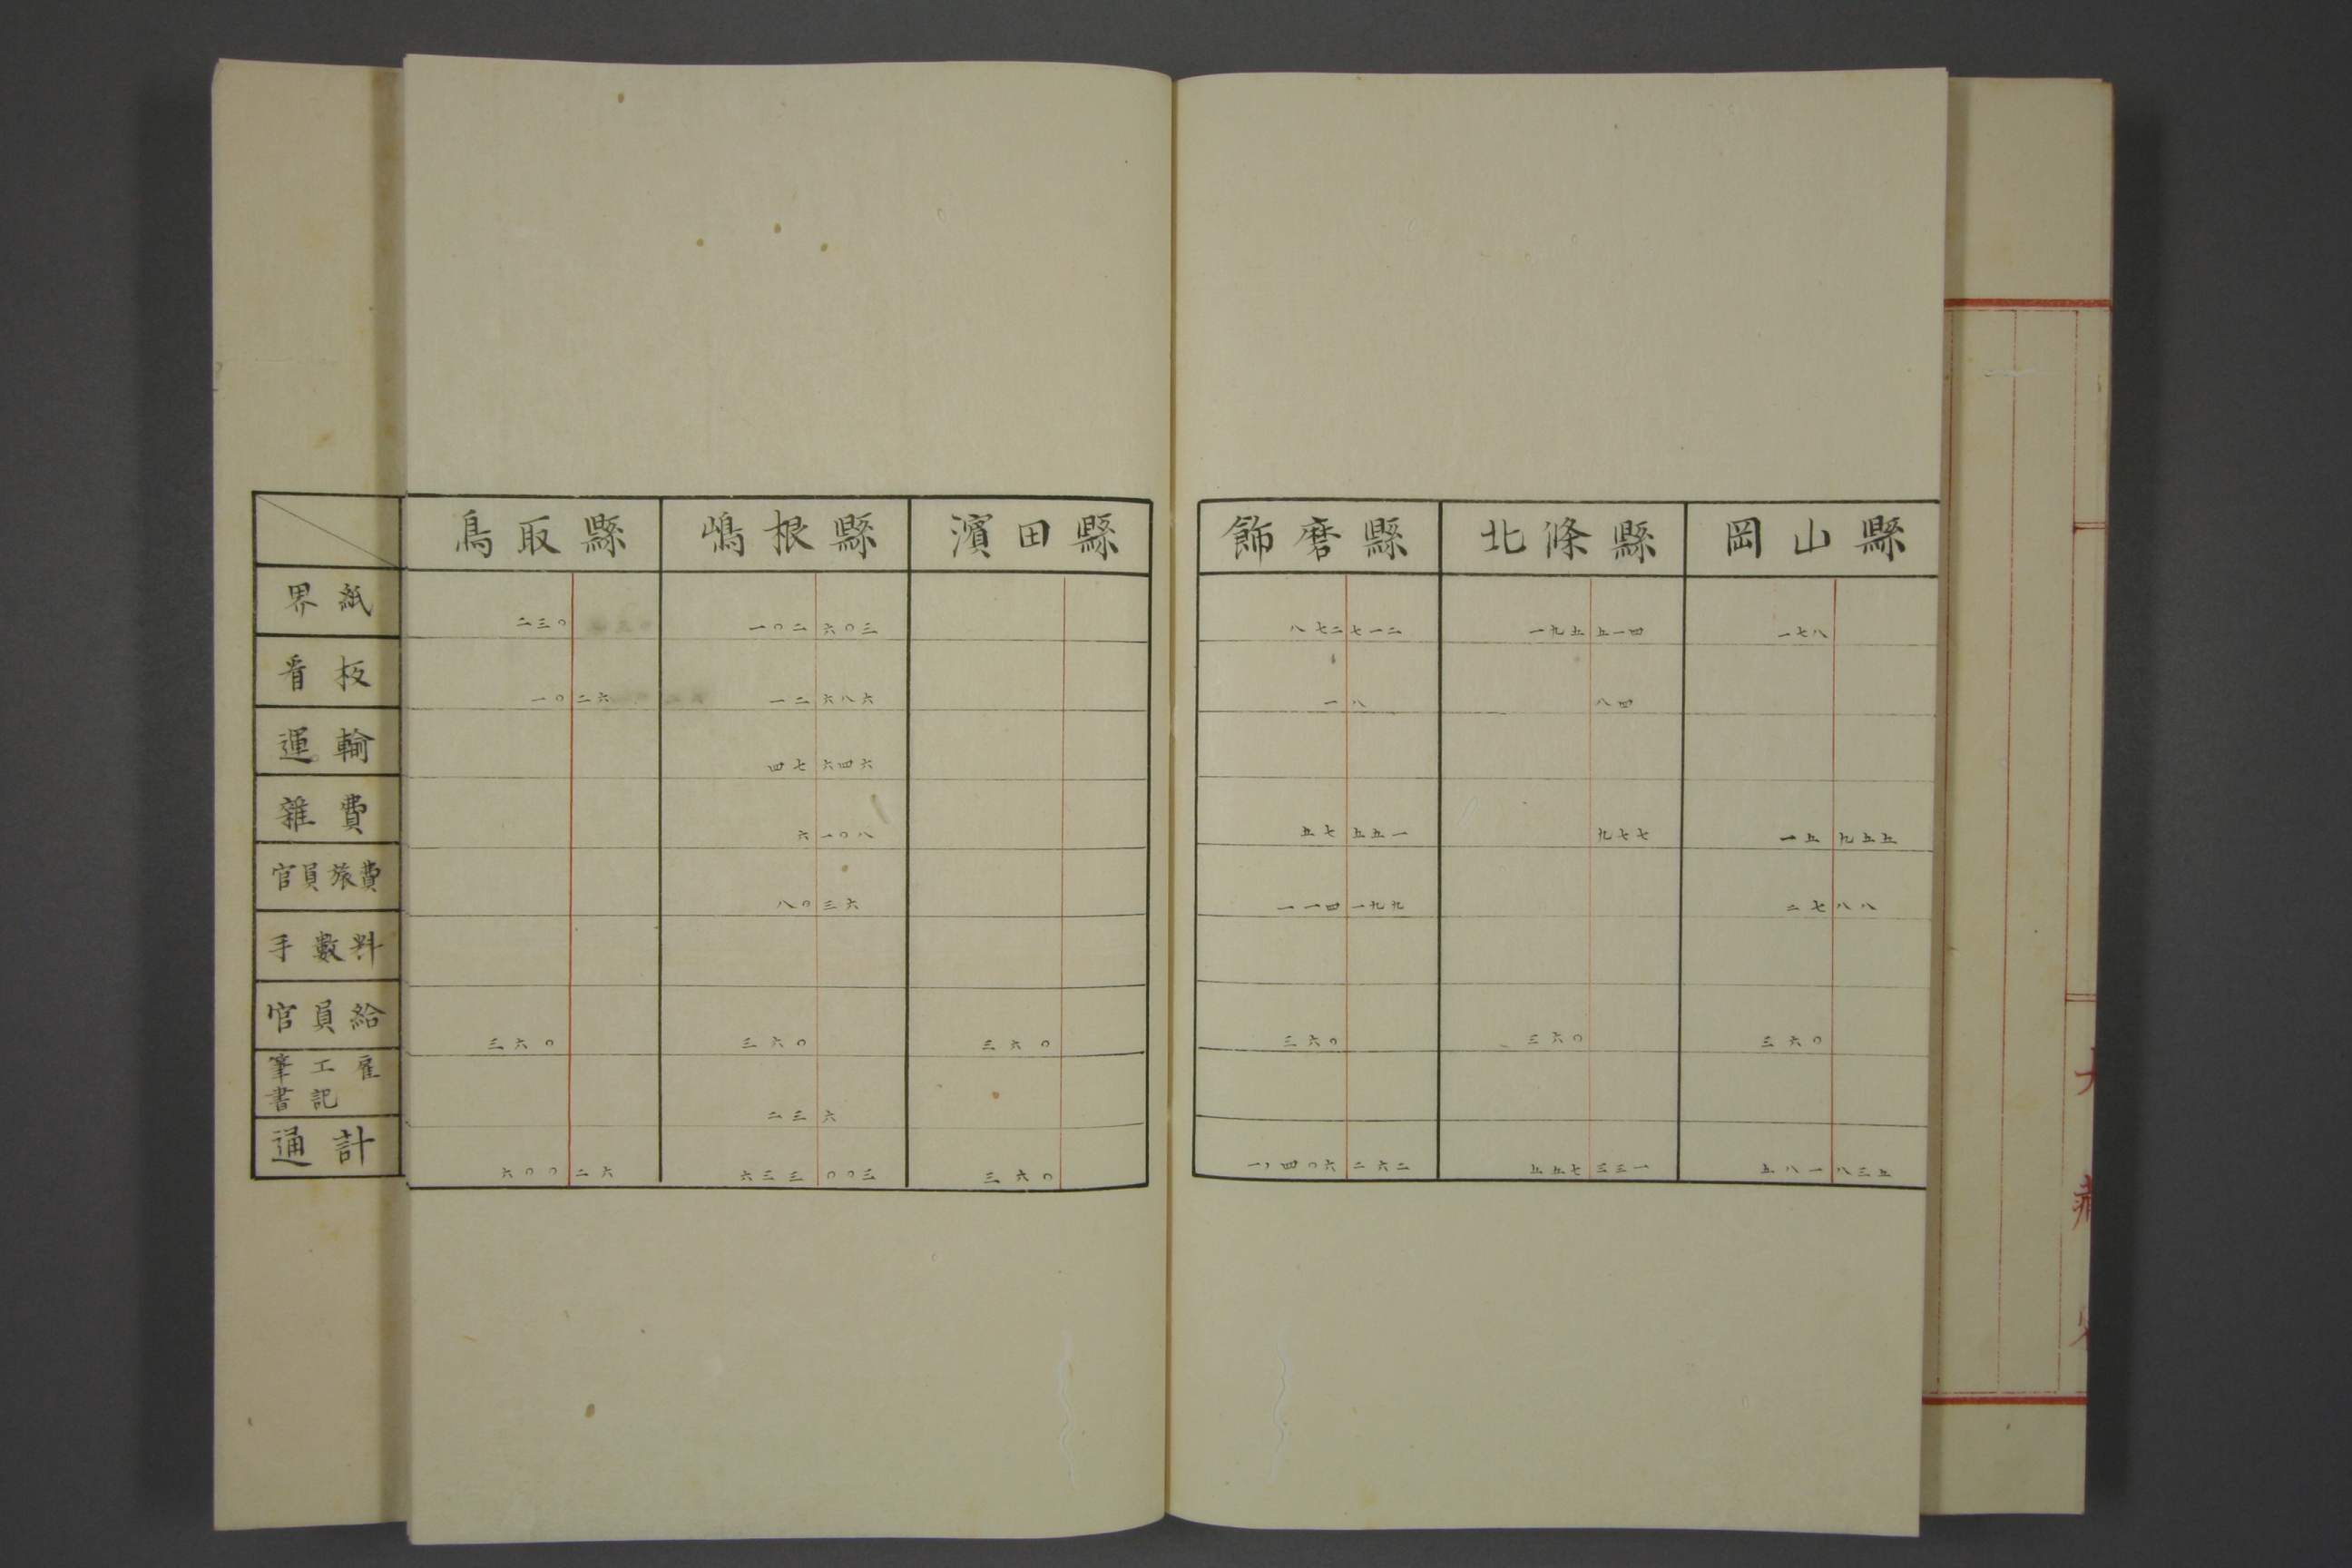 鳥取縣 嶋根縣 濱田縣 飾磨縣 北條縣 岡山縣
界紙 二三〇 一〇二六〇三 八七二七一二 一九五五一四 一七八
看板 一〇二六 一二六八六 一八 八四
運輸 四七六四六
雜費 六一〇八 五七五五一 九七七 一五九五五
官員旅費 八〇三六 一一四一九九 二七八八
手數料
官員給 三六〇 三六〇 三六〇 三六〇 三六〇 三六〇
筆工雇
書記 二三六
通計 六〇〇二六 六三三〇〇三 三六〇 一、四〇六二六二 五五七三三一 五八一八三五